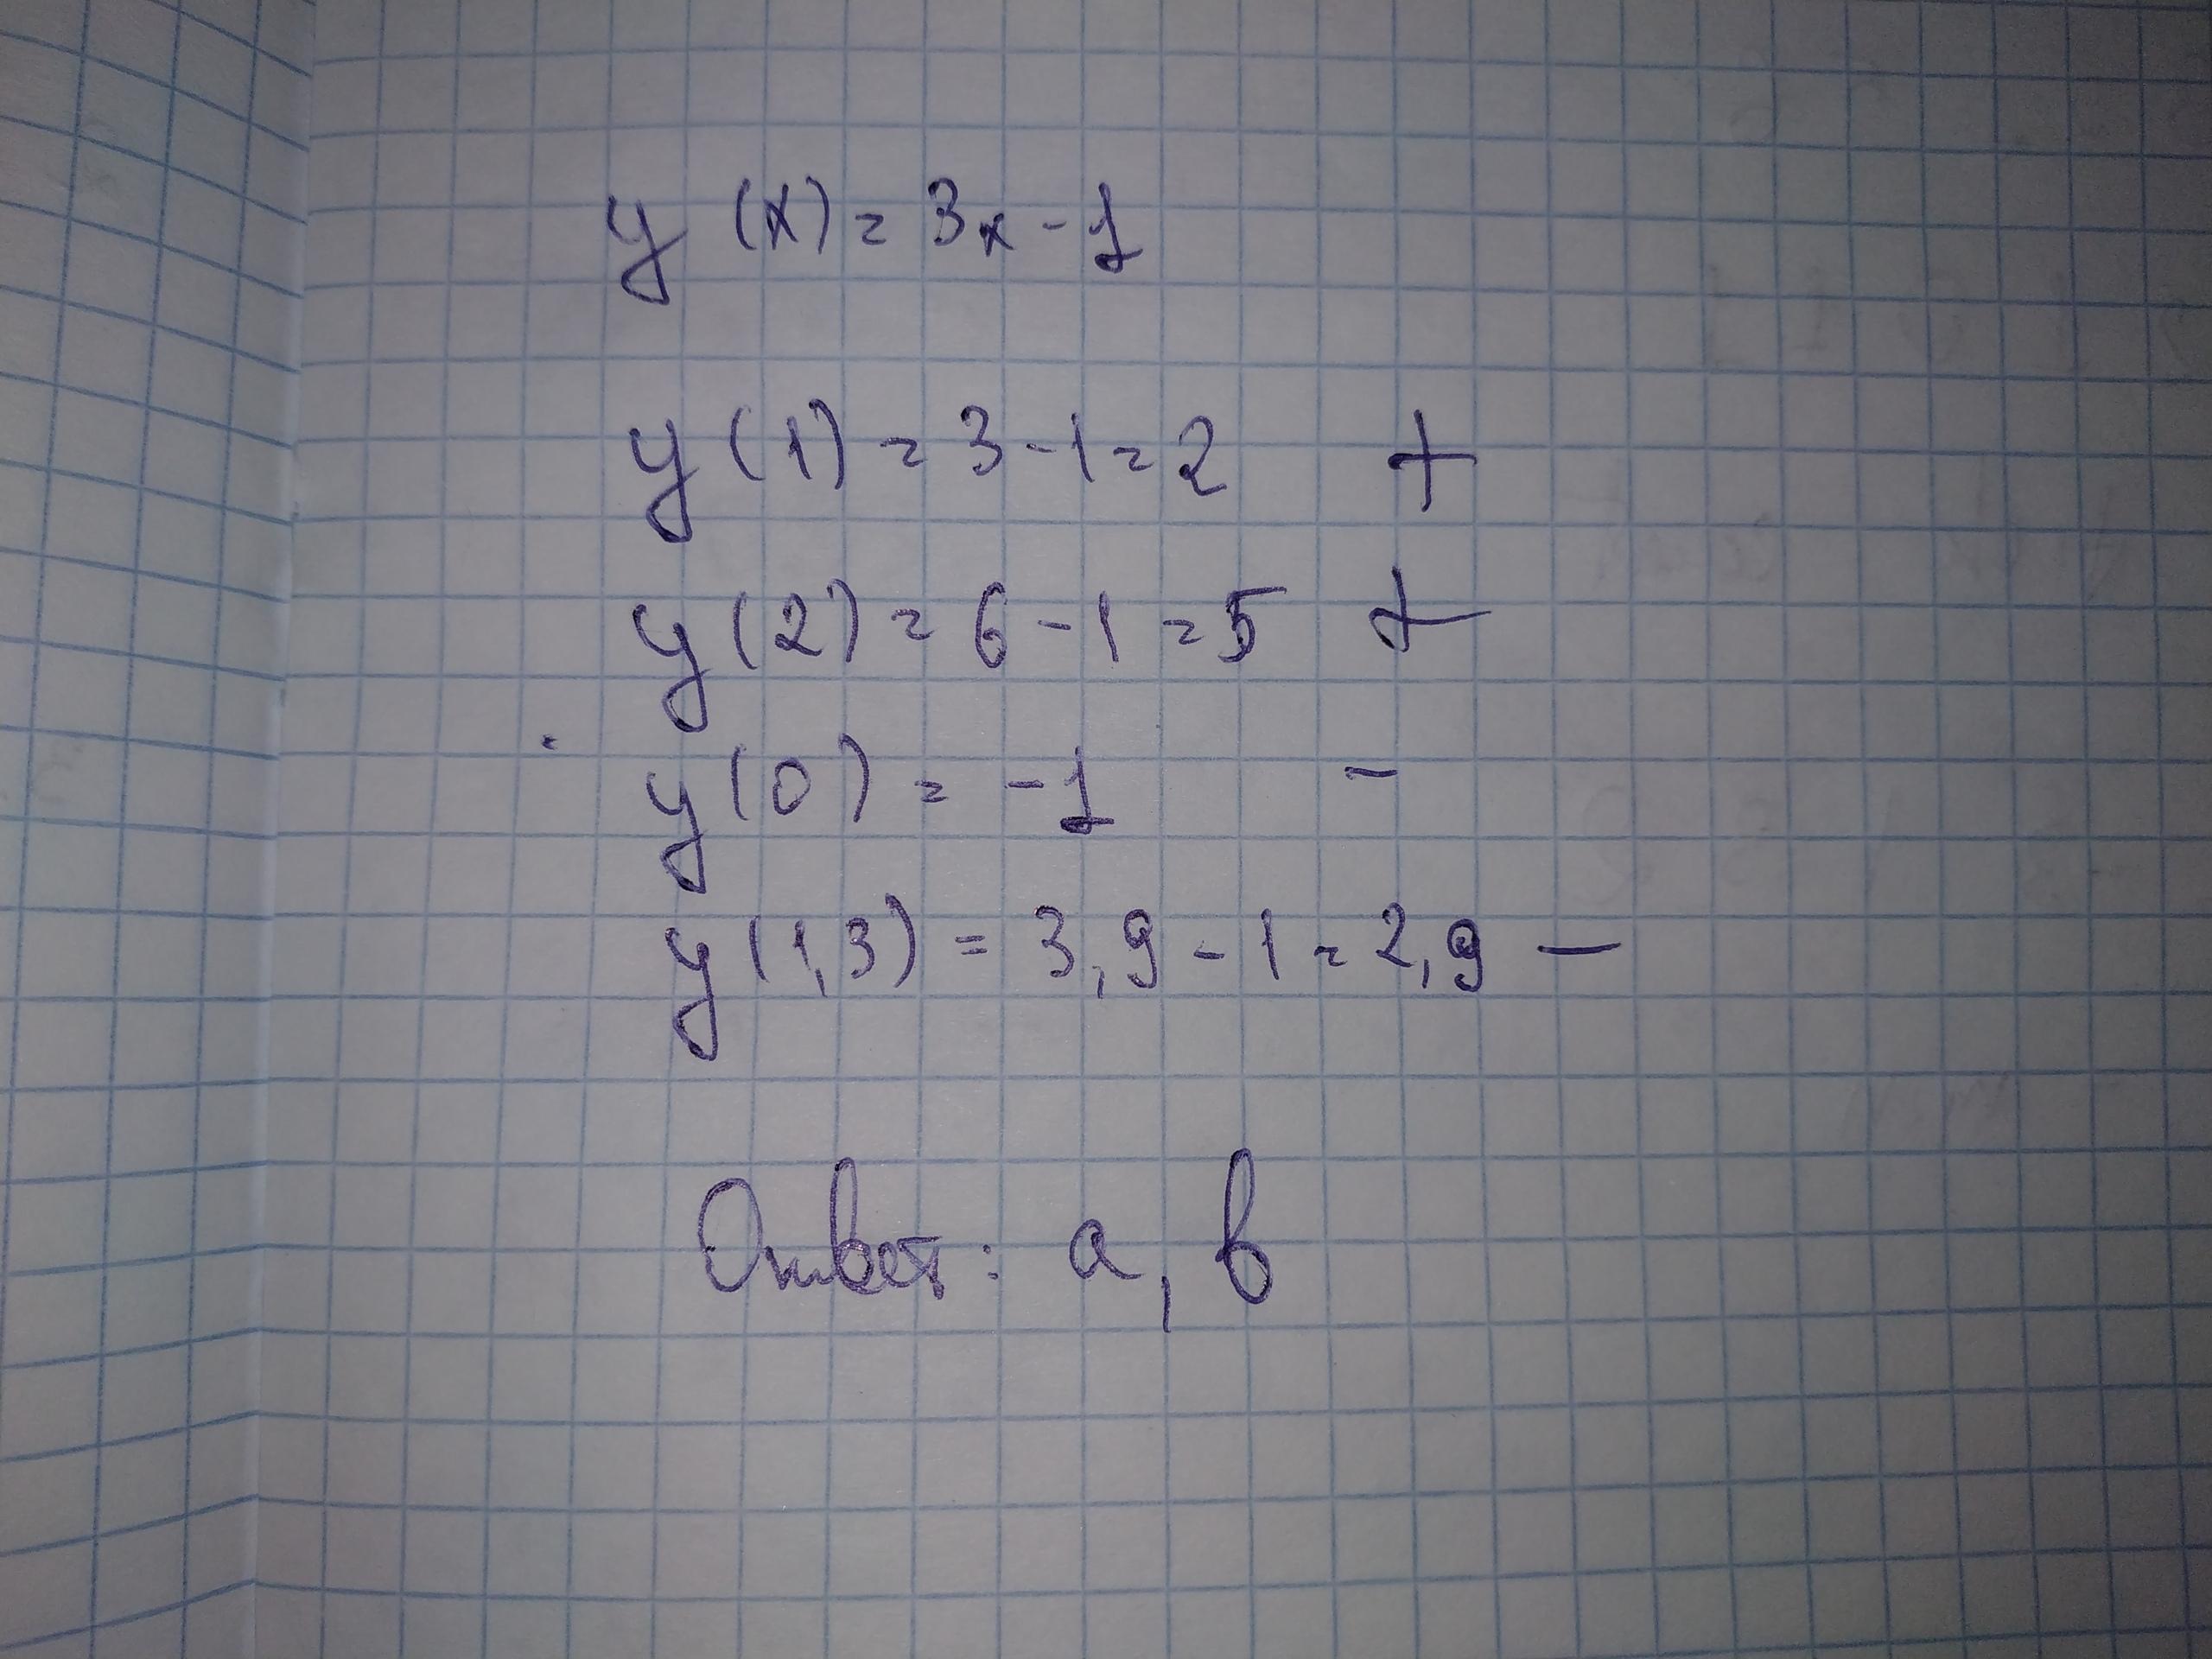 y (x) = 3x - 1
y (1) = 3 - 1 = 2 +
y (2) = 6 - 1 = 5 +
y (0) = -1 -
y (1,3) = 3,9 - 1 = 2,9 —
Ответ: а, в